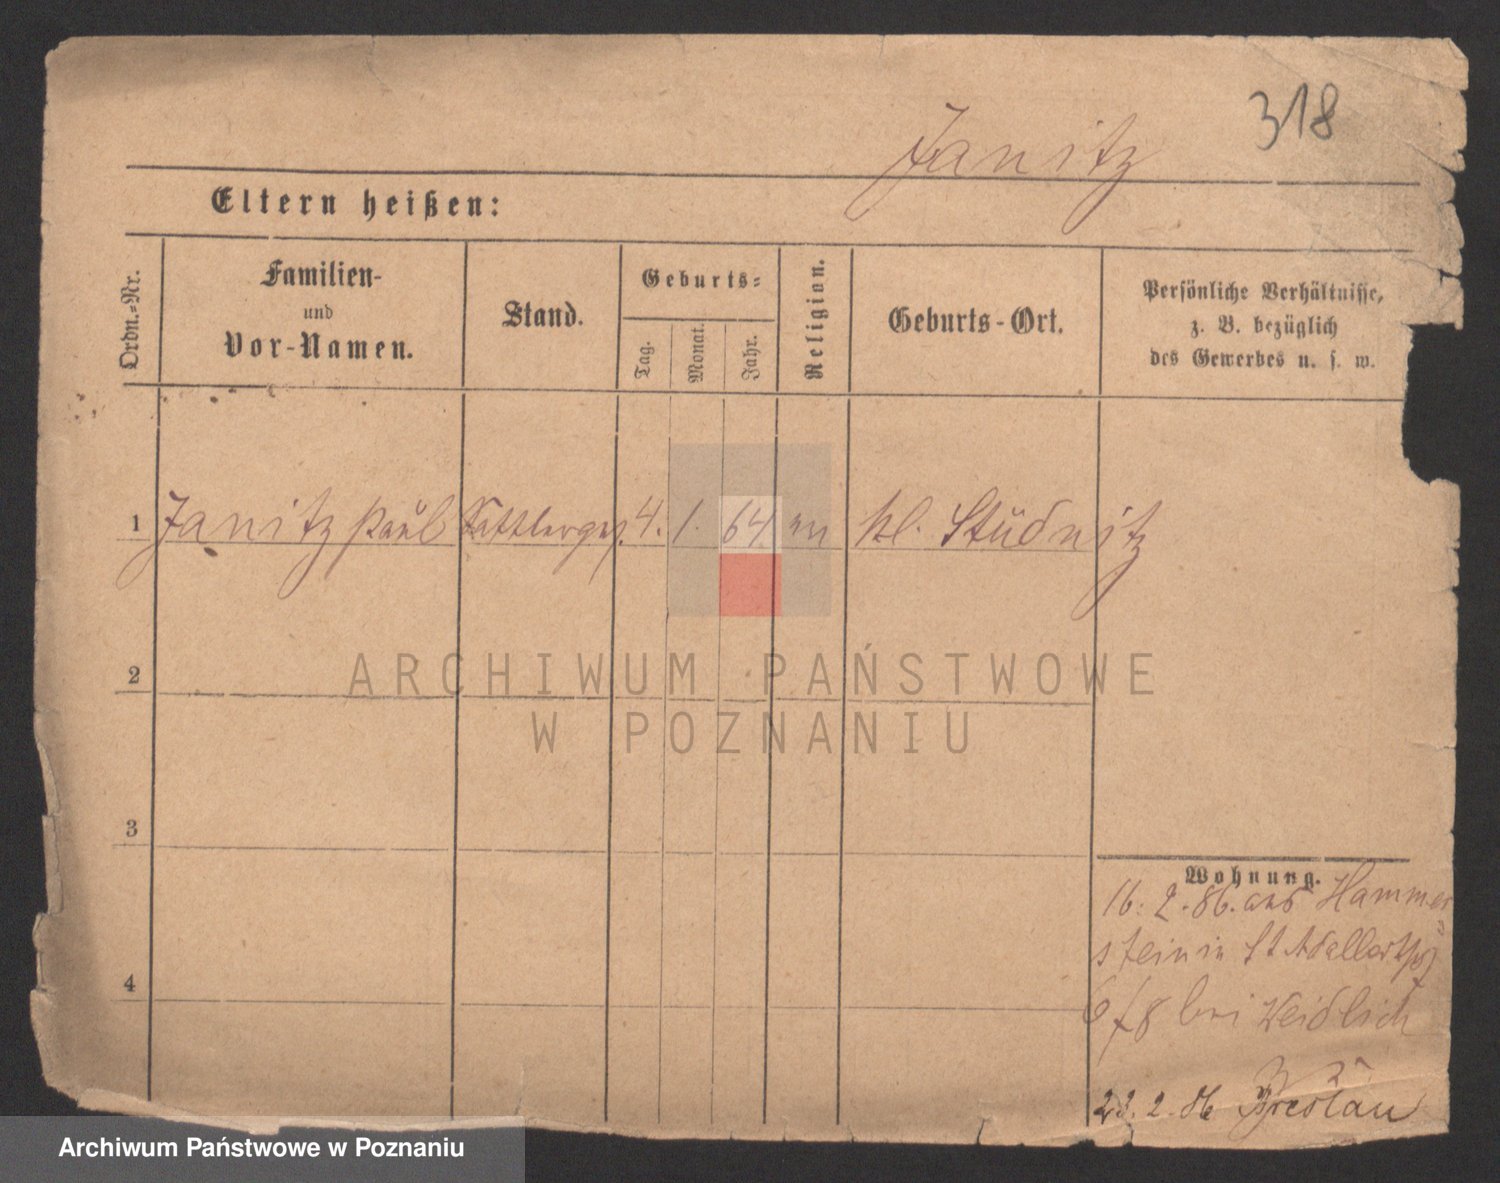 318
Janitz
Eltern heißen:
Ordn.-Nr.
Familien-
und
Vor-Namen.
Stand.
Geburts-
Tag.
Monat.
Jahr.
Religion.
Geburts-Ort.
Persönliche Verhältnisse,
z. B. bezüglich
des Gewerbes u. s. w.
1 Janitz Paul Sattlerges. 4. 1. 64. kl. Stüdnitz
ARCHIWUM PAŃSTWOWE
W POZNANIU
2
3
4
Wohnung.
16. 2. 86. aus Hammer
stein in St Adalbertstr
6/8 bei Weidlich
23. 2. 86 Breslau
Archiwum Państwowe w Poznaniu